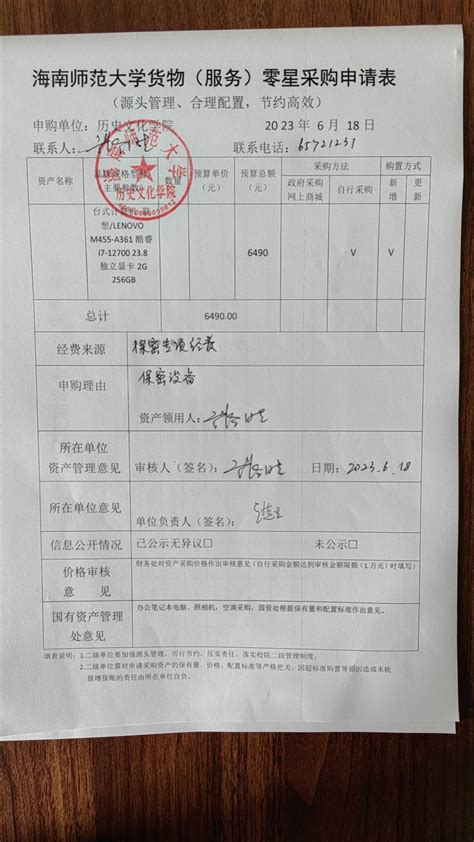 海南师范大学货物（服务）零星采购申请表
（源头管理、合理配置，节约高效）
申购单位：历史文化学院 2023 年 6 月 18 日
联系人： 联系电话：65721231
资产名称 数量 预算单价（元） 预算总额（元） 采购方法 购置方式
政府采购网上商城 自行采购 新增 更新
海南师范大学
历史文化学院
想/LENOVO
M455-A361 酷睿
i7-12700 23.8
独立显卡 2G
256GB
6490 V V
总计 6490.00
经费来源 保密专项经费
申购理由 保密设备
资产领用人：
所在单位
资产管理意见 审核人（签名）： 日期：2023.6.18
所在单位意见 单位负责人（签名）：
信息公开情况 已公示无异议□ 未公示□
价格审核
意 见
财务处对资产采购价格作出审核意见（自行采购金额达到审核金额限额（1 万元）时填写）
国有资产管理
处意见
办公笔记本电脑、照相机，空调采购，国资处根据保有量和配置标准作出意见。
填表说明：1.二级单位要加强源头管理，厉行节约，压实责任，落实校院二级管理制度；
2.二级单位需对申请采购资产的保有量、价格、配置标准等严格把关，因超标准购置等原因造成未能
报增报账的责任由所在单位自负。